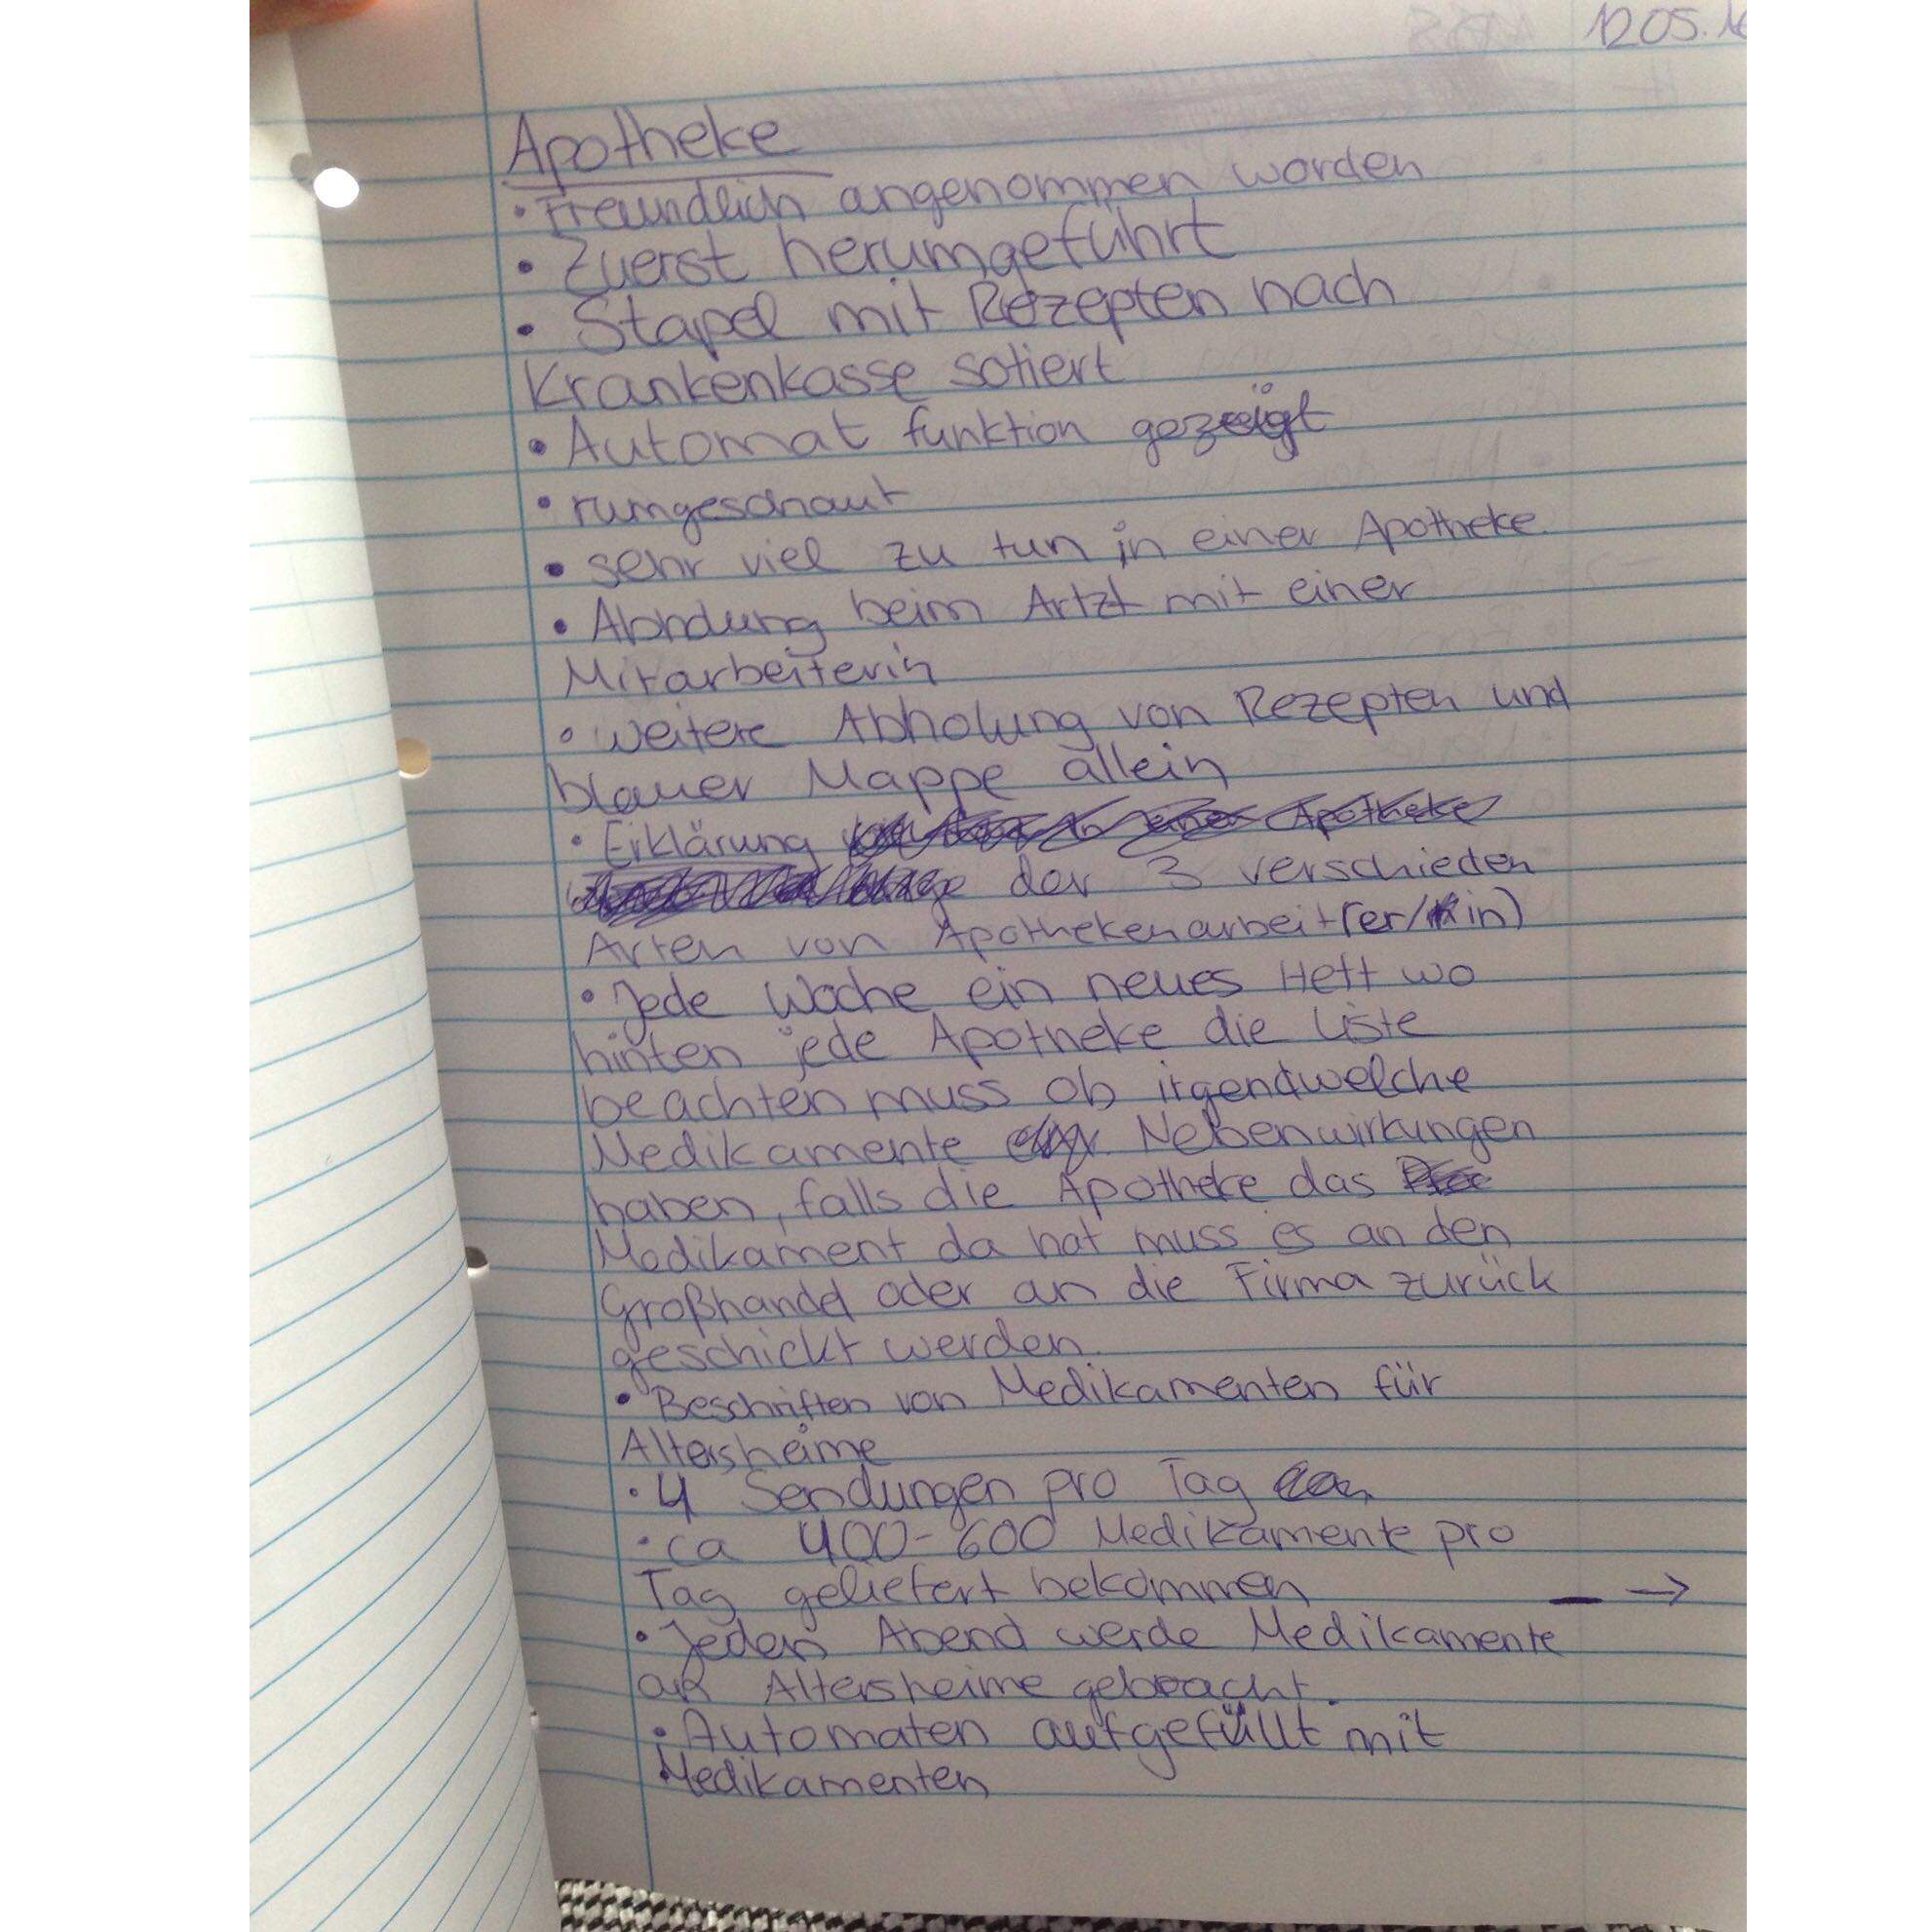 12.05.16
Apotheke
• Freundlich angenommen worden
• Zuerst herumgeführt
• Stapel mit Rezepten nach
Krankenkasse sotiert
• Automat funktion gezeigt
• rumgeschaut
• sehr viel zu tun in einer Apotheke.
• beim Artzt mit einer
Mitarbeiterin
• weitere Abholung von Rezepten und
blauer Mappe allein
• Erklärung
der 3 verschieden
Arten von Apothekenarbeit(er/in)
• Jede Woche ein neues Heft wo
hinten jede Apotheke die Liste
beachten muss ob irgendwelche
Medikamente Nebenwirkungen
haben, falls die Apotheke das
Medikament da hat muss es an den
Großhandel oder an die Firma zurück
geschickt werden.
• Beschriften von Medikamenten für
Altersheime
• 4 Sendungen pro Tag
• ca 400-600 Medikamente pro
Tag geliefert bekommen →
• Jeden Abend werde Medikamente
an Altersheime gebracht.
• Automaten aufgefüllt mit
Medikamenten